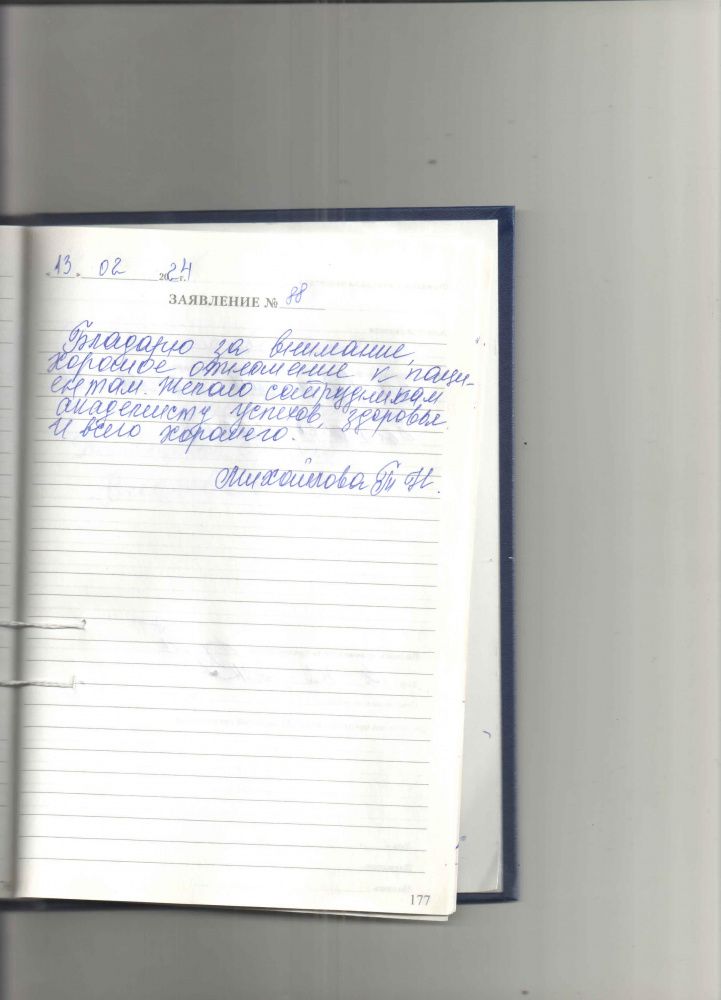 "13" 02 2024 г.
ЗАЯВЛЕНИЕ № 88
Благодарю за внимание,
хорошее отношение к паци-
ентам. Желаю сотрудникам
академисту успехов, здоровья
и всего хорошего.
Михайлова Т Н.
177